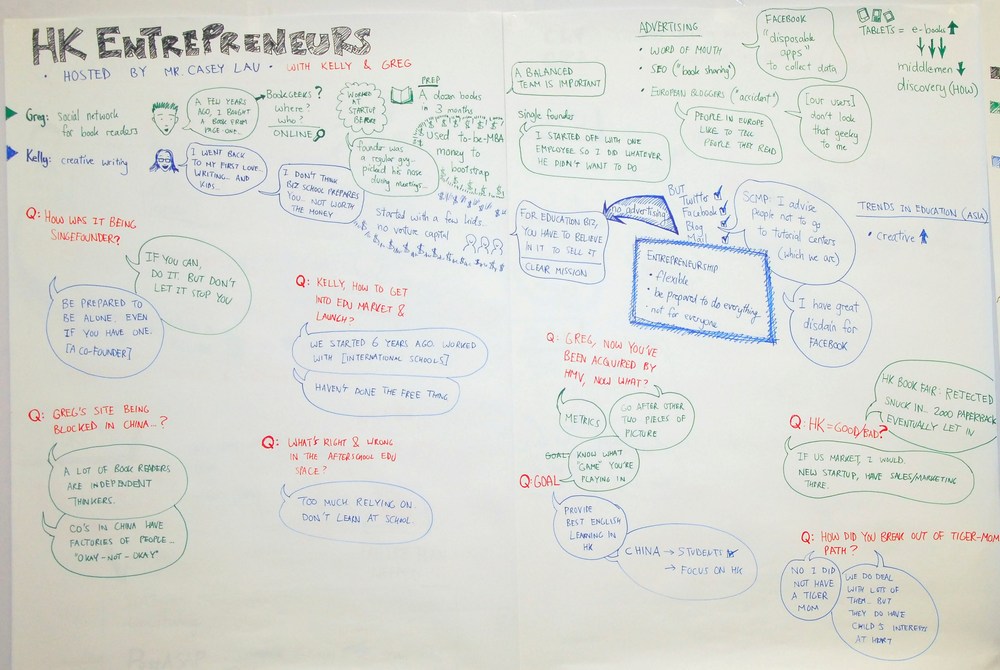 HK ENTREPRENEURS
• HOSTED BY MR. CASEY LAU • WITH KELLY & GREG
Greg: social network
for book readers
A FEW YEARS
AGO, I BOUGHT
A BOOK FROM
PAGE-ONE...
BOOKGEEKS?
where?
who?
ONLINE
WORKED
AT
STARTUP
BEFORE
founder was
a regular guy...
picked his nose
during meetings...
PREP
A dozen books
in 3 months
used to-be-MBA
money to
bootstrap
Kelly: creative writing
I WENT BACK
TO MY FIRST LOVE...
WRITING... AND
KIDS...
I DON'T THINK
BIZ SCHOOL PREPARES
YOU... NOT WORTH
THE MONEY
Started with a few kids..
no venture capital
Q: HOW WAS IT BEING
SINGEFOUNDER?
IF YOU CAN,
DO IT. BUT DON'T
LET IT STOP YOU
BE PREPARED TO
BE ALONE. EVEN
IF YOU HAVE ONE.
[A CO-FOUNDER]
Q: KELLY, HOW TO GET
INTO EDU MARKET &
LAUNCH?
WE STARTED 6 YEARS AGO. WORKED
WITH [INTERNATIONAL SCHOOLS]
HAVEN'T DONE THE FREE THING
Q: GREG'S SITE BEING
BLOCKED IN CHINA...?
A LOT OF BOOK READERS
ARE INDEPENDENT
THINKERS.
CO'S IN CHINA HAVE
FACTORIES OF PEOPLE...
"OKAY-NOT-OKAY"
Q: WHAT'S RIGHT & WRONG
IN THE AFTERSCHOOL EDU
SPACE?
TOO MUCH RELYING ON.
DON'T LEARN AT SCHOOL.
A BALANCED
TEAM IS IMPORTANT
Single founder
I STARTED OFF WITH ONE
EMPLOYEE SO I DID WHATEVER
HE DIDN'T WANT TO DO
ADVERTISING
• WORD OF MOUTH
• SEO ("book sharing")
• EUROPEAN BLOGGERS ("accident")
FACEBOOK
"disposable
apps"
to collect data
PEOPLE IN EUROPE
LIKE TO TELL
PEOPLE THEY READ
[our users]
don't look
that geeky
to me
TABLETS = e-books
middlemen
discovery (HOW)
FOR EDUCATION BIZ,
YOU HAVE TO BELIEVE
IN IT TO SELL IT
CLEAR MISSION
no advertising
BUT
Twitter
Facebook
Blog
Mail
SCMP: I advise
people not to go
to tutorial centers
(which we are)
I have great
disdain for
FACEBOOK
TRENDS IN EDUCATION (ASIA)
• creative
ENTREPRENEURSHIP
• flexible
• be prepared to do everything
• not for everyone
Q: GREG, NOW YOU'VE
BEEN ACQUIRED BY
HMV, NOW WHAT?
METRICS
GO AFTER OTHER
TWO PIECES OF
PICTURE
GOAL
KNOW WHAT
"GAME" YOU'RE
PLAYING IN
Q: GOAL
PROVIDE
BEST ENGLISH
LEARNING IN
HK
CHINA → STUDENTS
→ FOCUS ON HK
HK BOOK FAIR: REJECTED
SNUCK IN... 2000 PAPERBACK
EVENTUALLY LET IN
Q: HK = GOOD/BAD?
IF US MARKET, I WOULD.
NEW STARTUP, HAVE SALES/MARKETING
THERE.
Q: HOW DID YOU BREAK OUT OF TIGER-MOM
PATH?
NO I DID
NOT HAVE
A TIGER
MOM
WE DO DEAL
WITH LOTS OF
THEM... BUT
THEY DO HAVE
CHILD'S INTERESTS
AT HEART